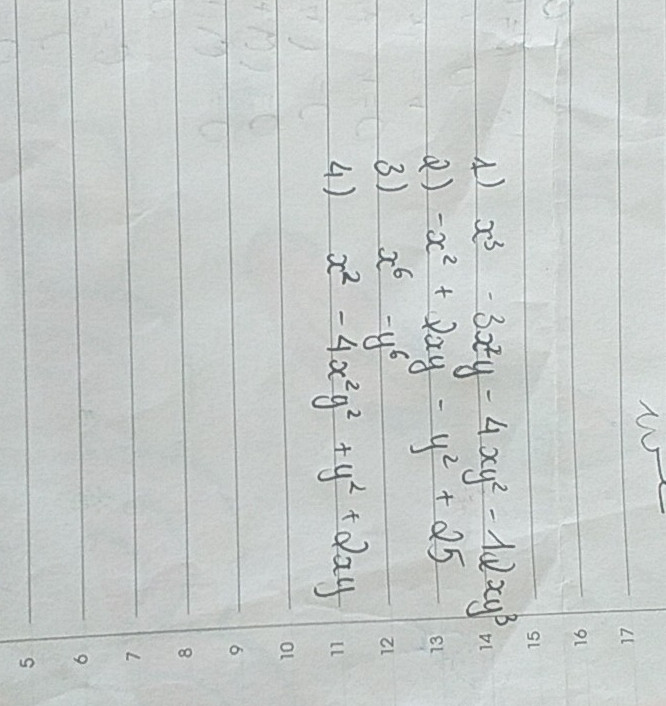 1) x³ - 3x²y - 4xy² - 12xy³
2) -x² + 2xy - y² + 25
3) x⁶ - y⁶
4) x² - 4x²y² + y² + 2xy
5
6
7
8
9
10
11
12
13
14
15
16
17